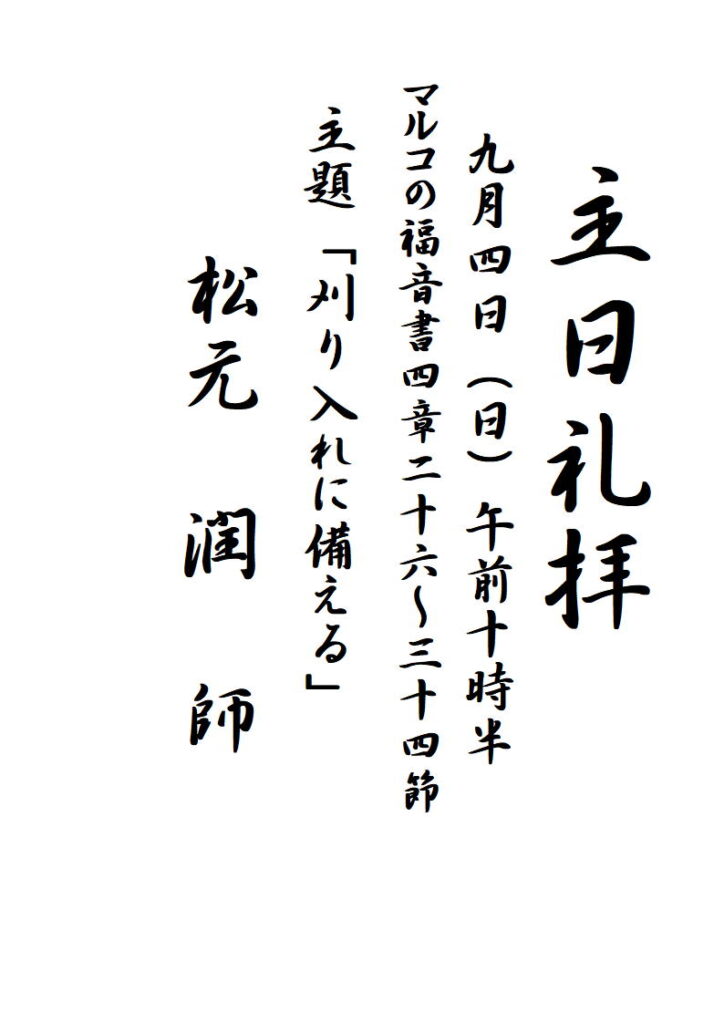 主日礼拝
九月四日（日）午前十時半
マルコの福音書四章二十六～三十四節
主題「刈り入れに備える」
松元　潤　師